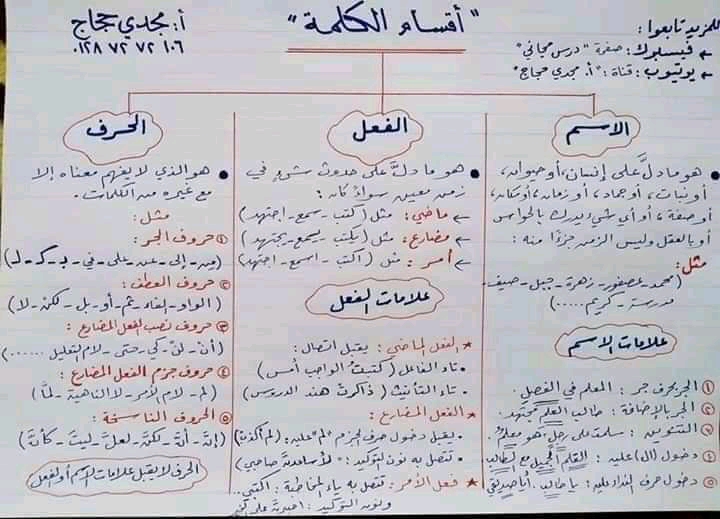 للمزيد تابعوا :
← فيسبوك: صفحة "درس مجاني"
← يوتيوب: قناة: "أ. مجدي حجاج"
"أقسام الكلمة"
أ: مجدي حجاج
٠١٢٨ ٧٢ ٧٢ ١٠٦
الاسم
• هو ما دلَّ على إنسان، أو حيوان،
أو نبات، أو جماد، أو زمان، أو مكان،
أو صفة، أو أي شيء يُدرك بالحواس
أو بالعقل وليس الزمن جزءًا منه :
مثل:
(محمد - عصفور - زهرة - جبل - صيف -
مدرسة - كريم .....)
علامات الاسم
① الجر بحرف جر : المعلم في الفصل.
② الجر بالإضافة: طالب العلم مجتهد.
③ التنوين : سلمت على رجلٍ هو معلمٌ.
④ دخول (ال) عليه : القلم الجميل مع الطالب
⑤ دخول حرف النداء عليه: يا طالب، أيا صديقي
الفعل
• هو ما دلَّ على حدوث شيء في
زمن معين سواءً كان :
← ماضي: مثل (كتب - سمع - اجتهد)
← مضارع: مثل (يكتب - يسمع - يجتهد)
← أمر: مثل (اكتب - اسمع - اجتهد)
علامات الفعل
★ الفعل الماضي : يقبل اتصال :
• تاء الفاعل (كتبتُ الواجب أمس)
• تاء التأنيث (ذاكرتْ هند الدروس)
★ الفعل المضارع :
• يقبل دخول حرف الجزم "لم" عليه: (لم أكذبْ)
• تتصل به نون التوكيد: "لأساعدنَّ صاحبي"
★ فعل الأمر: تتصل به ياء المخاطبة: اكتبي..
ونون التوكيد : اصبرنَّ على
الحرف
• هو الذي لا يفهم معناه إلا
مع غيره من الكلمات.
مثل:
① حروف الجر:
(من - إلى - عن - على - في - بـ - كـ - لـ)
② حروف العطف:
(الواو - الفاء - ثم - أو - بل - لكنْ - لا)
③ حروف نصب الفعل المضارع :
(أنْ - لنْ - كي - حتى - لام التعليل ......)
④ حروف جزم الفعل المضارع :
(لم - لام الأمر - لا الناهية - لمَّا)
⑤ الحروف الناسخة :
(إنَّ - أنَّ - لكنَّ - لعلَّ - ليتَ - كأنَّ)
الحرف لا يقبل علامات الاسم أو الفعل